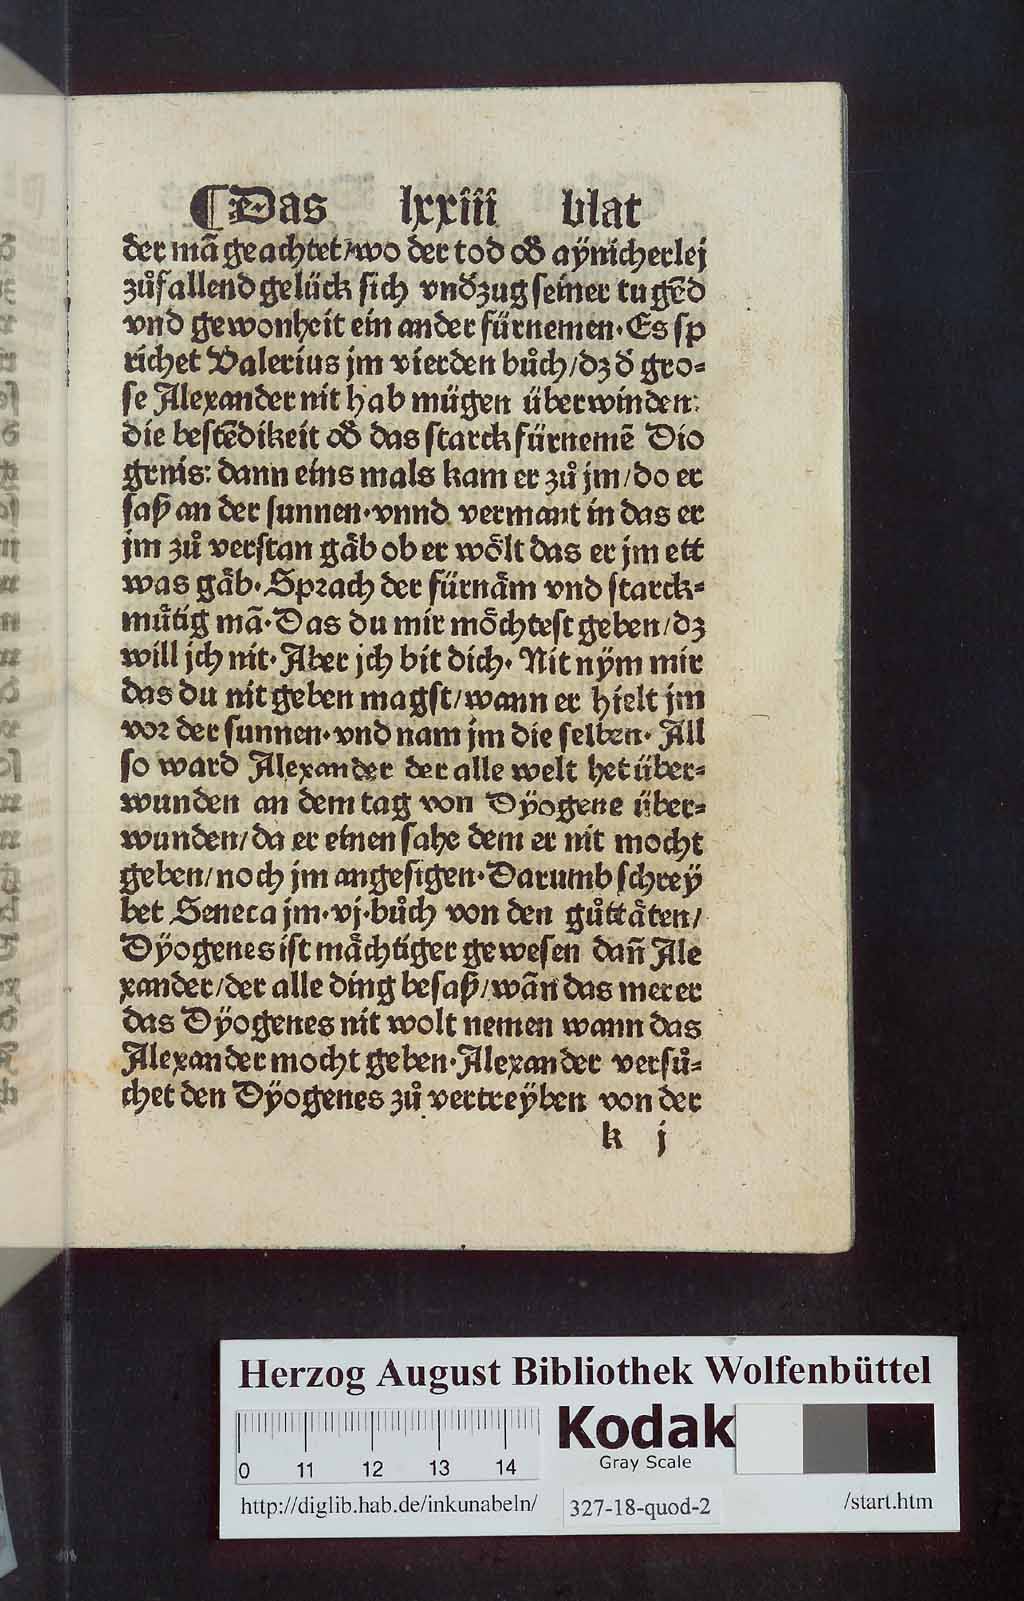 ¶Das lxxiii blat
der mā geachtet/wo der tod oď aÿnicherlej
zůfallend gelück sich vnďzug seiner tugēd
vnd gewonheit ein ander fürnemen·Es sp
richet Valerius jm vierden bůch/dz ď gro⸗
se Alexander nit hab mügen überwinden:
die bestēdikeit oď das starck fürnemē Dio
genis: dann eins mals kam er zů jm/do er
saß an der sunnen·vnnd vermant in das er
jm zů verstan gåb ob er wölt das er jm ett
was gåb·Sprach der fürnåm vnd starck⸗
mütig mā·Das du mir möchtest geben/dz
will jch nit·Aber jch bit dich· Nit nÿm mir
das du nit geben magst/wann er hielt jm
vor der sunnen·vnd nam jm die selben· All
so ward Alexander der alle welt het über⸗
wunden an dem tag von Dÿogene über⸗
wunden/da er einen sahe dem er nit mocht
geben/noch jm angesigen·Darumb schreÿ
bet Seneca jm·vj·bůch von den gůttåten/
Dÿogenes ist måchtiger gewesen dañ Ale
xander/der alle ding besaß/wān das mer er
das Dÿogenes nit wolt nemen wann das
Alexander mocht geben·Alexander versů⸗
chet den Dÿogenes zů vertreÿben von der
k j
Herzog August Bibliothek Wolfenbüttel
0 11 12 13 14
Kodak
Gray Scale
http://diglib.hab.de/inkunabeln/ 327-18-quod-2 /start.htm